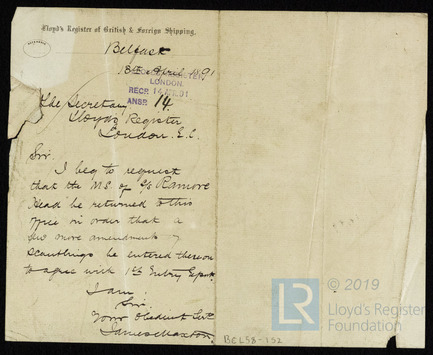 Lloyd's Register of British & Foreign Shipping.
Belfast
13th April 1891
LONDON
RECD 14 APR. 91
ANSR 14.
The Secretary
Lloyds Register
London. E.C.
Sir.
I beg to request
that the M.S. of S/S Ramore
Head be returned to this
office in order that a
few more amendments of
scantlings be entered thereon
to agree with 1st Entry Report.
I am.
Sir.
Your Obedient Servt
James Maxton
BEL58-152
LR
© 2019
Lloyd's Register
Foundation